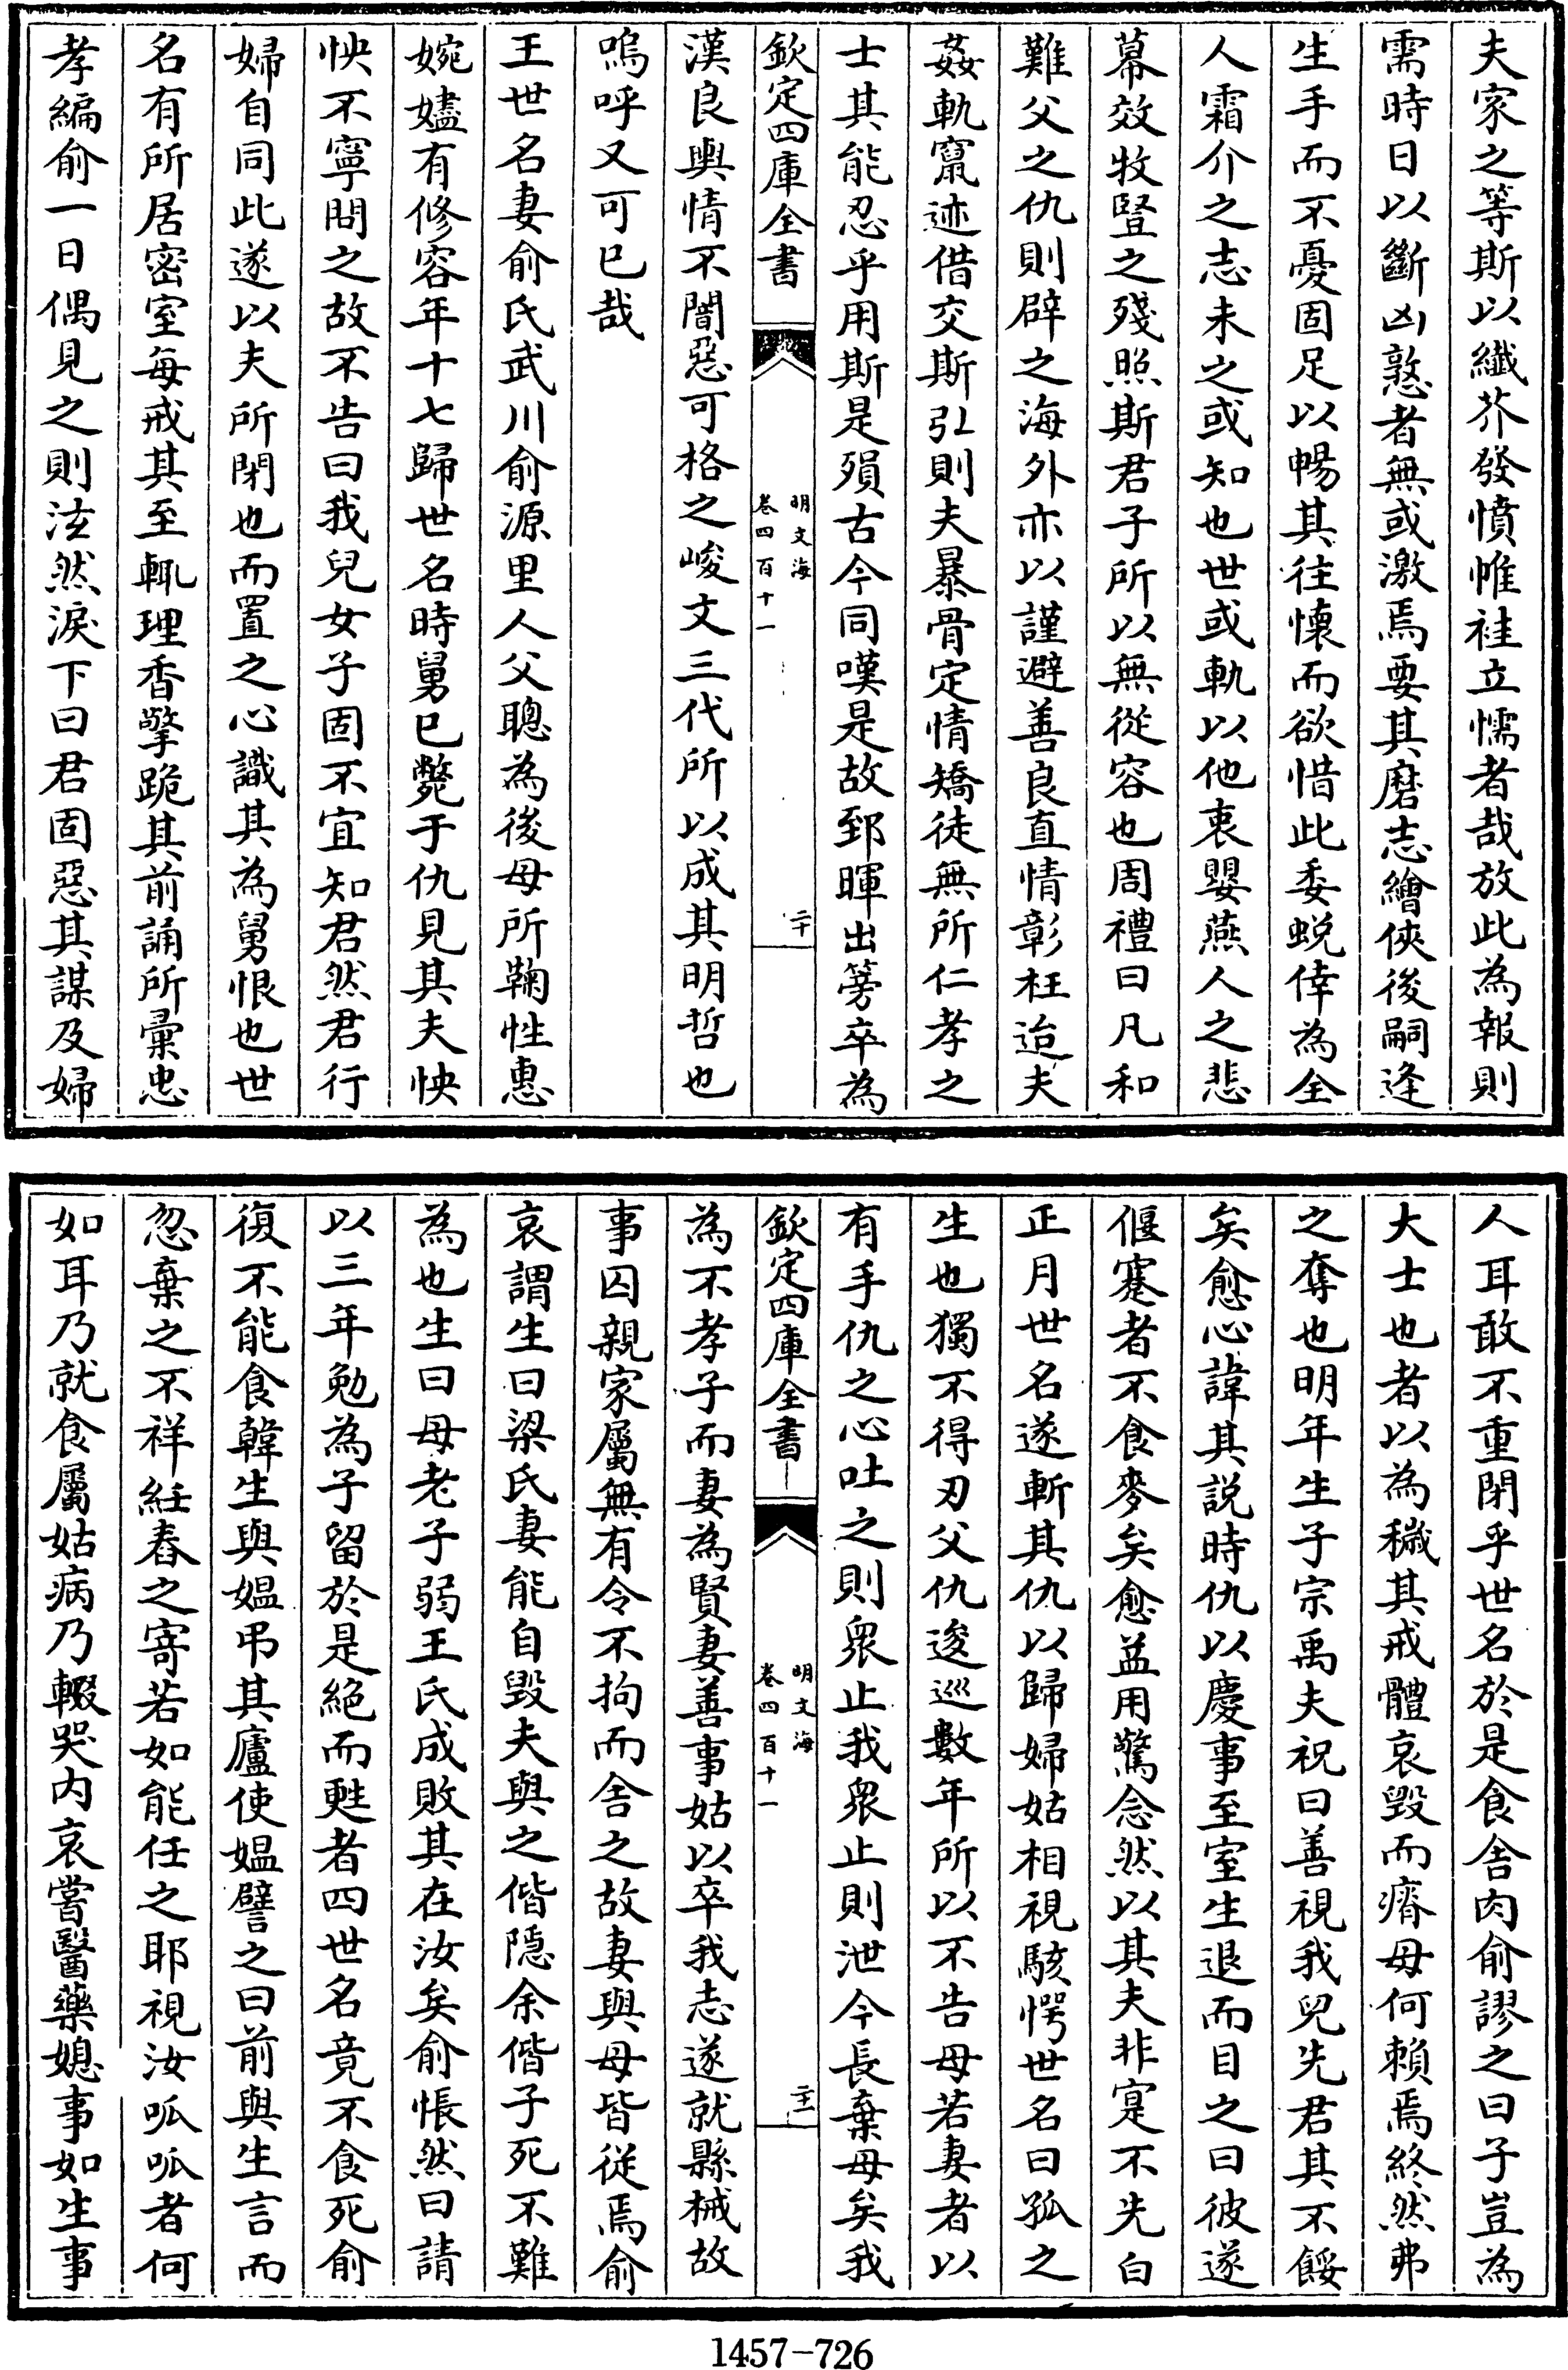 夫家之等斯以纎芥發憤帷袿立懦者哉放此為報則
需時日以斷凶憝者無或激焉要其磨志繪俠後嗣逢
生手而不憂固足以暢其往懷而欲惜此委蜕倖為全
人霜介之志未之或知也世或軌以他衷嬰燕人之悲
幕效牧豎之殘照斯君子所以無從容也周禮曰凡和
難父之仇則辟之海外亦以謹避善良直情彰枉迨夫
姦軌竄迹借交斯引則夫暴骨定情矯徒無所仁孝之
士其能忍乎用斯是殞古今同嘆是故郅暉出篣卒為
欽定四庫全書
明文海
卷四百十一
二十
漢良輿情不闇惡可格之峻文三代所以成其明哲也
嗚呼又可已哉
王世名妻俞氏武川俞源里人父聰為後母所鞠性惠
婉嫿有修容年十七歸世名時舅已斃于仇見其夫怏
怏不寧問之故不告曰我兒女子固不宜知君然君行
婦自同此遂以夫所閉也而置之心識其為舅恨也世
名有所居密室每戒其至輒理香擎跪其前誦所彚忠
孝編俞一日偶見之則泫然淚下曰君固惡其謀及婦
人耳敢不重閉乎世名於是食舍肉俞謬之曰子豈為
大士也者以為穢其戒體哀毀而瘠母何賴焉終然弗
之奪也明年生子宗禹夫祝曰善視我兒先君其不餒
矣愈心諱其説時仇以慶事至室生退而目之曰彼遂
偃蹇者不食麥矣愈益用驚念然以其夫非寔不先白
正月世名遂斬其仇以歸婦姑相視駭愕世名曰孤之
生也獨不得刃父仇逡巡數年所以不告母若妻者以
有手仇之心吐之則衆止我衆止則泄今長棄母矣我
欽定四庫全書
明文海
卷四百十一
二十一
為不孝子而妻為賢妻善事姑以卒我志遂就縣械故
事囚親家屬無有令不拘而舍之故妻與母皆從焉俞
哀謂生曰梁氏妻能自毀夫與之偕隠余偕子死不難
為也生曰母老子弱王氏成敗其在汝矣俞悵然曰請
以三年勉為子留於是絶而甦者四世名竟不食死俞
復不能食韓生與媪弔其廬使媪譬之曰前與生言而
忽棄之不祥紝舂之寄若如能任之耶視汝呱呱者何
如耳乃就食屬姑病乃輟哭内哀嘗醫藥媳事如生事
1457-726